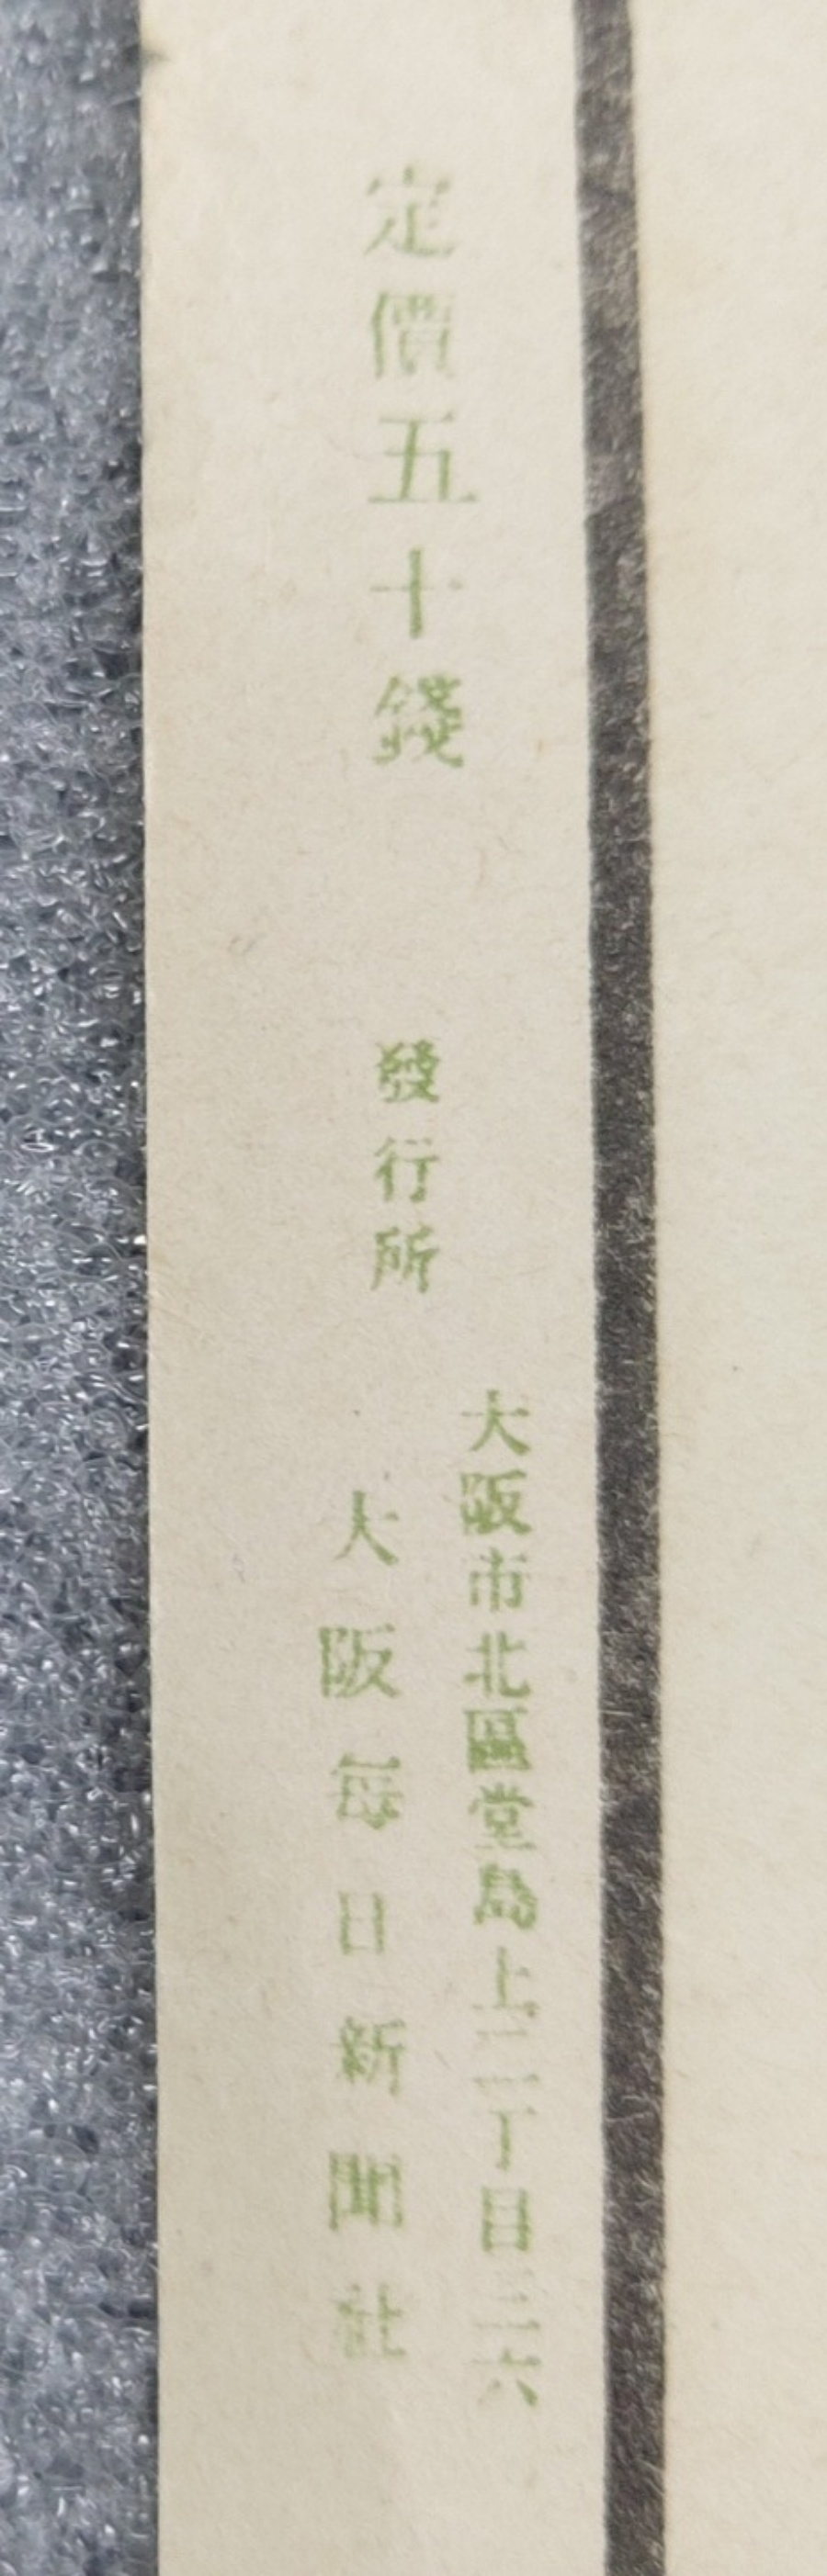 定價五十錢
發行所
大阪市北區堂島上二丁目三六
大阪每日新聞社